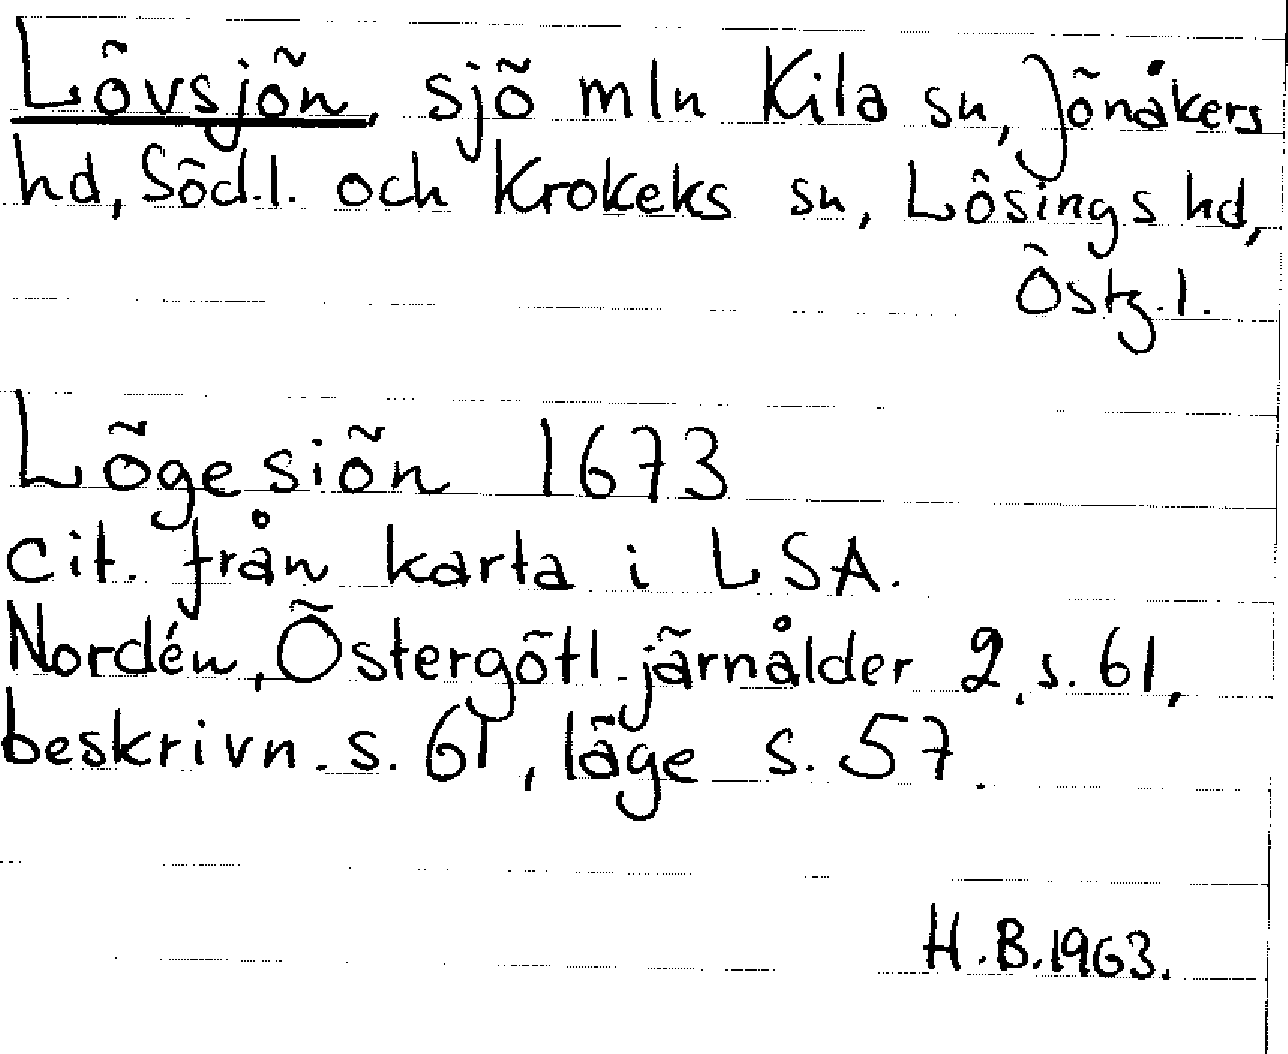 Lövsjön, sjö mln Kila sn, Jönåkers
hd, Söd.l. och Krokeks sn, Lösings hd,
Östg.l.
Lögesiön 1673
cit. från karta i LSA.
Nordén, Östergötl. järnålder 2, s. 61,
beskrivn. s. 61, läge s. 57.
H.B.1963.